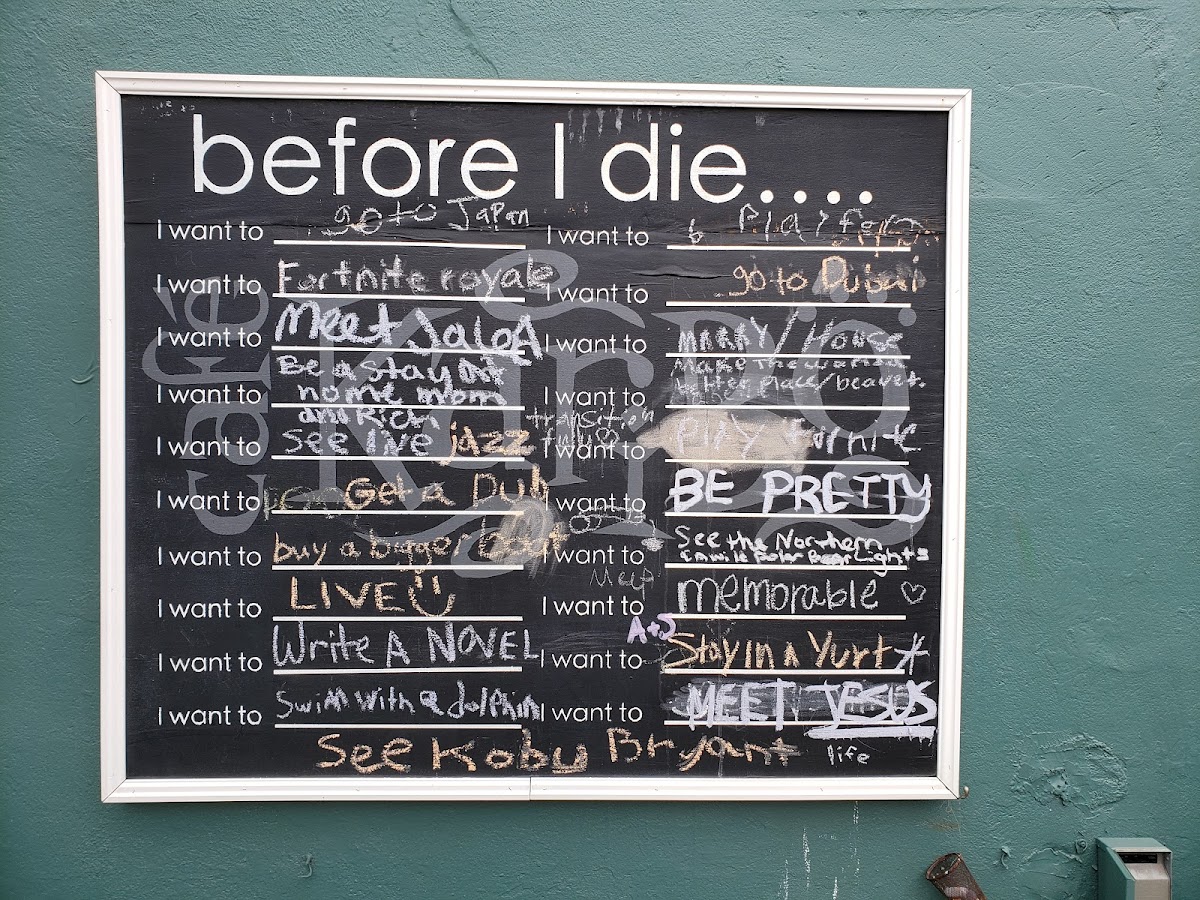 before I die....
I want to go to Japan
I want to Fortnite royale
I want to Meet JaleA
I want to Be a stay at
home mom
and Rich
I want to see live jazz
I want to Get a Dub
I want to buy a bigger boat
I want to LIVE
I want to Write A NOVEL
I want to Swim with a dolphin
I want to Play
I want to go to Dubai
I want to MARRY / HOUSE
I want to Make the world
better place/
transition
fully
I want to PLAY
I want to BE PRETTY
I want to See the Northern
Lights
Polar Bear
I want to memorable
A+J
I want to Stay In A Yurt
I want to MEET JESUS
See Kobu Bryant
life
café
KarDö